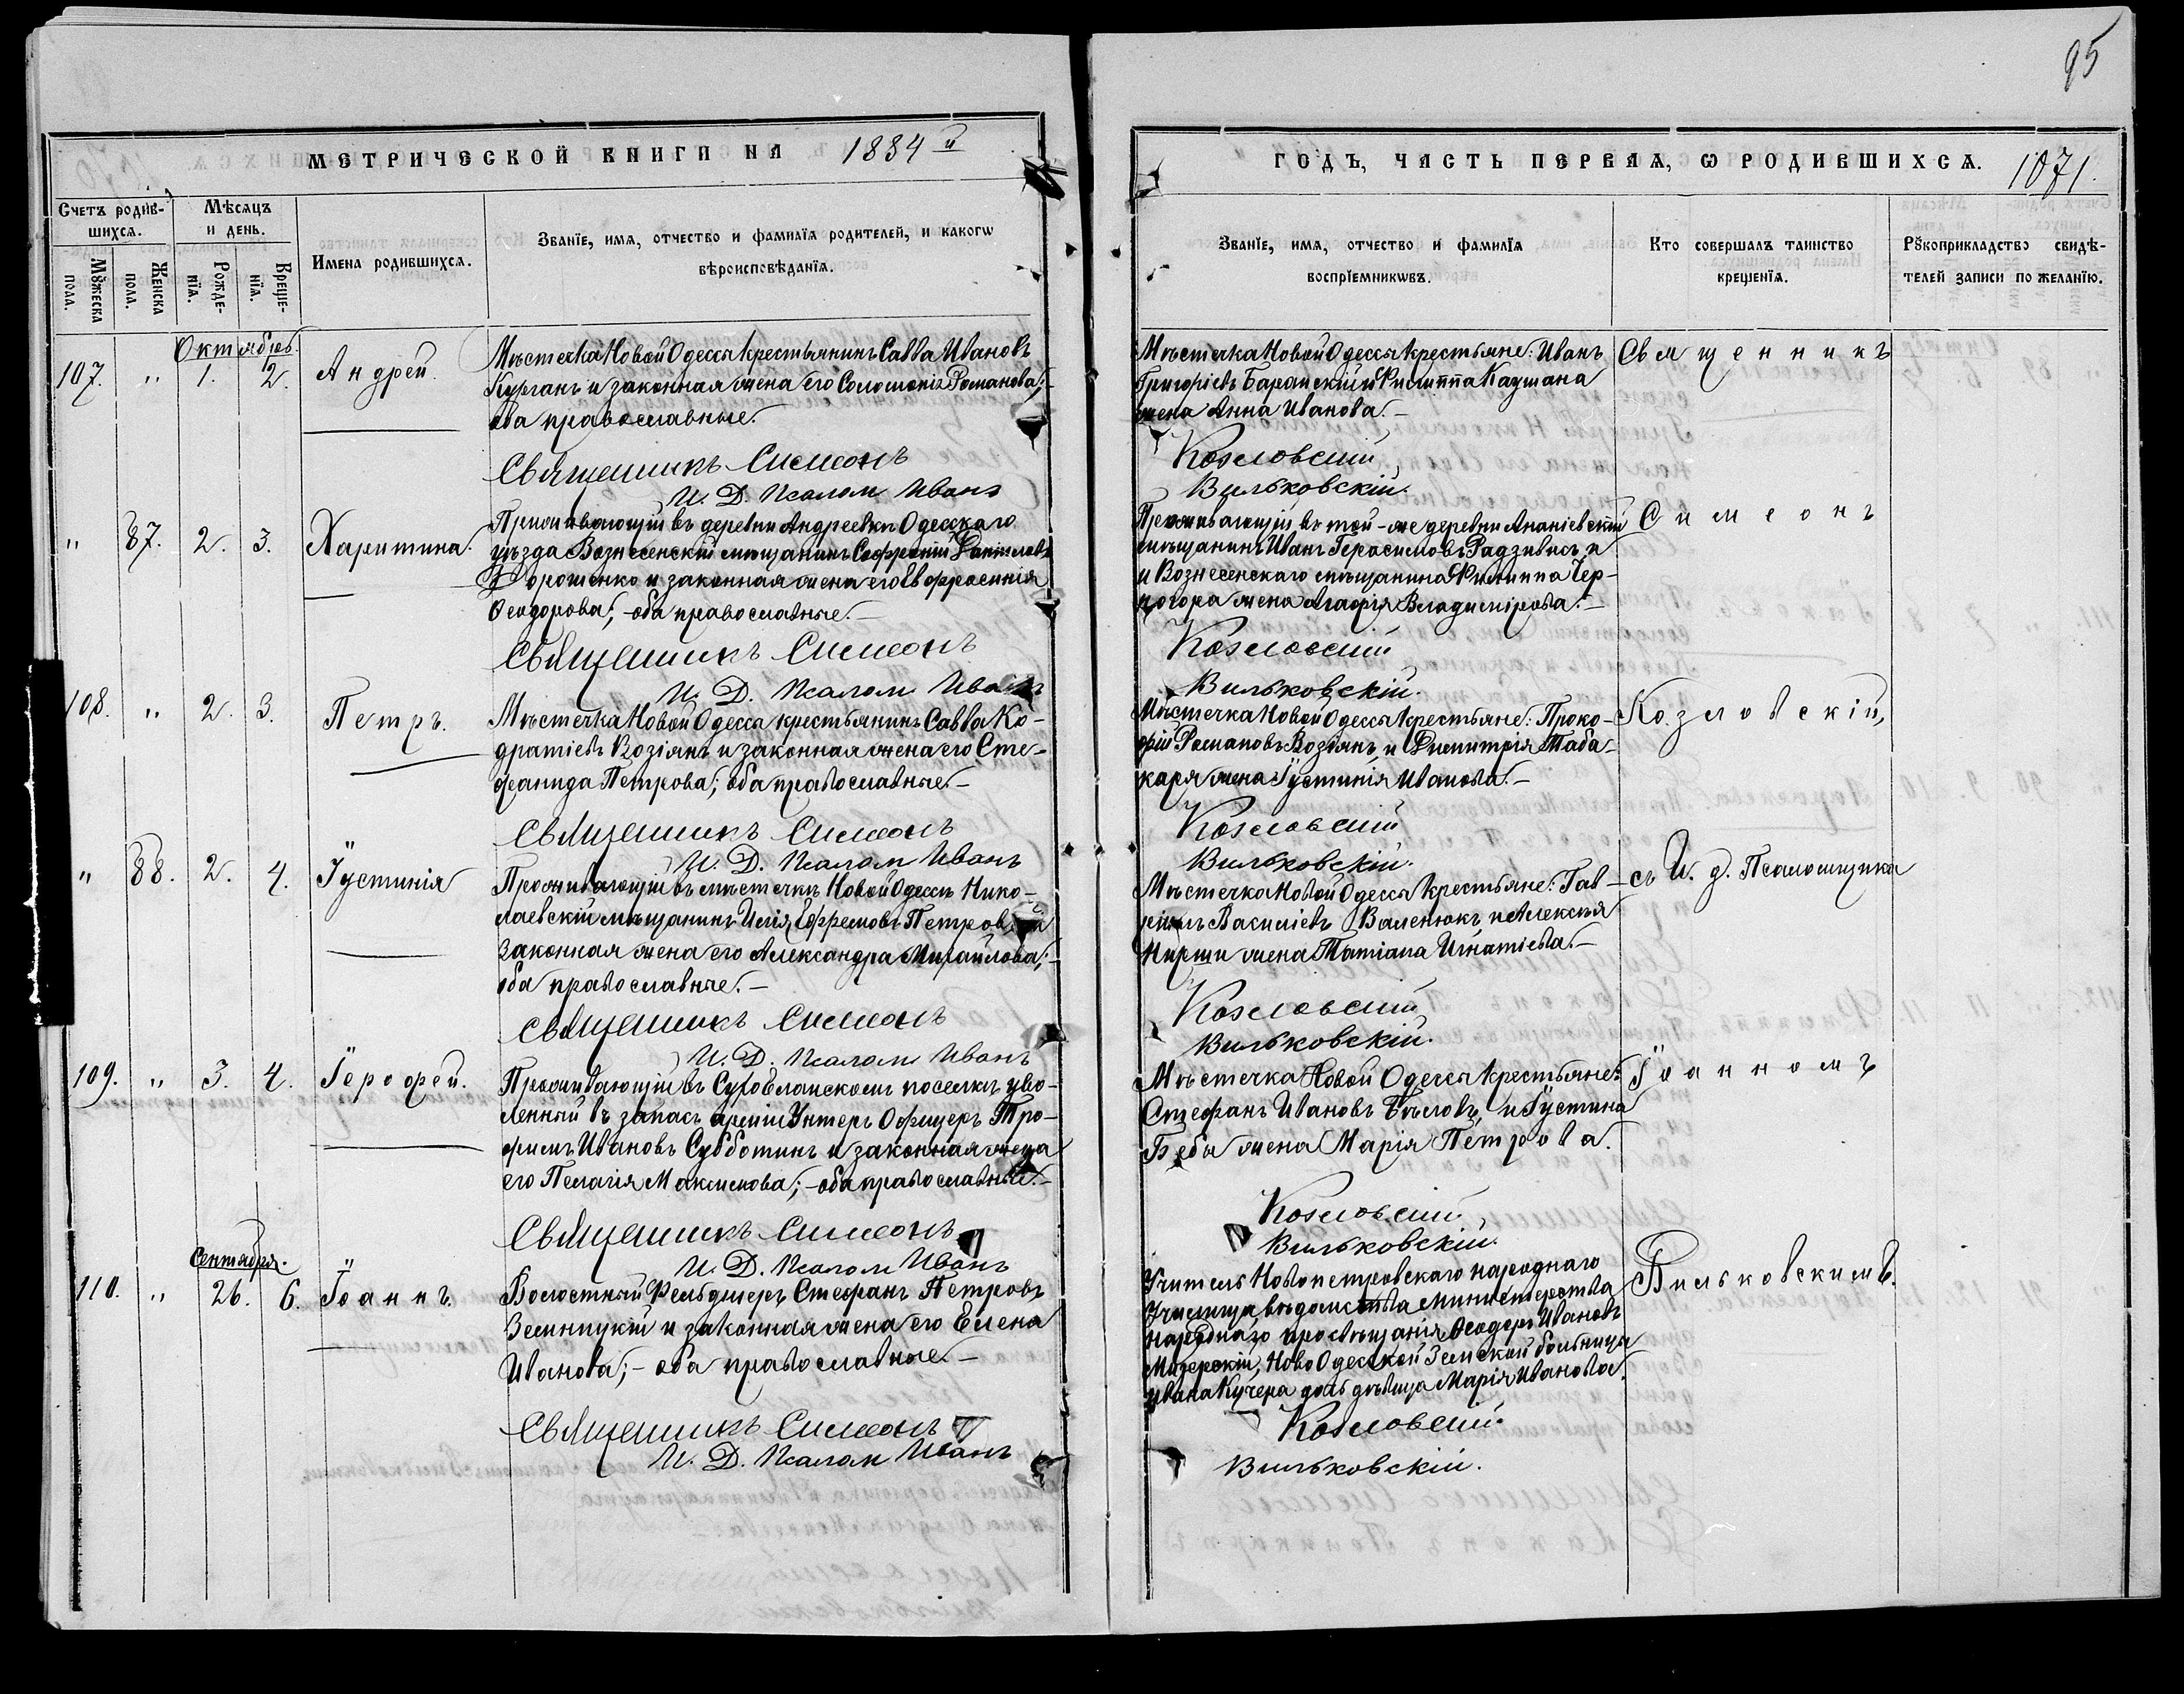 95
МЕТРИЧЕСКОЙ КНИГИ НА 1884 й
ГОДЪ, ЧАСТЬ ПЕРВАЯ, Ѡ РОДИВШИХСѦ. 1071.
Счетъ родив-
шихсѧ.
Мѣсяцъ
и день.
Мꙋжеска
пола.
Женска
пола.
Рожде-
нїѧ.
Креще-
нїѧ.
Имена родившихсѧ.
Званїе, имѧ, отчество и фамилїѧ родителей, и какогѡ
вѣроисповѣданїѧ.
Званїе, имѧ, отчество и фамилїѧ
воспрїемникѡвъ.
Кто совершалъ таинство
крещенїѧ.
Рꙋкоприкладство свидѣ-
телей записи по желанїю.
Октября
107. " 1. 2. Андрей.
Мѣстечка Новой Одессы крестьянинъ Савва Ивановъ
Курганъ и законная жена его Соломонія Романова;
оба православные.
Священникъ Симеонъ
И. Д. Псалом Иванъ
Мѣстечка Новой Одессы крестьяне: Иванъ
Григоріевъ Баранскій и Филиппа Каушана
жена Анна Иванова.
Козловскій
Вильковскій.
Священникъ
" 87. 2. 3. Харитина.
Проживающій въ деревни Андреевкѣ Одесскаго
уѣзда Вознесенскій мѣщанинъ Софроній Даніиловъ
Дорошенко и законная жена его Евфросинія
Ѳеодорова; - оба православные. -
Священникъ Симеонъ
И. Д. Псалом Иванъ
Проживающій въ той-же деревни Ананіевскій
мѣщанинъ Иванъ Герасимовъ Радзивилъ и
и Вознесенскаго мѣщанина Филиппа Чер-
ногора жена Агафія Владимірова. -
Козловскій
Вильковскій.
Симеонъ
108. " 2. 3. Петръ.
Мѣстечка Новой Одесса крестьянинъ Савва Ко-
дратіевъ Возіянъ и законная жена его Сте-
фанида Петрова; оба православные. -
Священникъ Симеонъ
И. Д. Псалом Иванъ
Мѣстечка Новой Одессы крестьяне: Проко-
фій Романовъ Возіянъ и Димитрія Таба-
каря жена Іустинія Иванова. -
Козловскій
Вильковскій.
Козловскій,
" 88. 2. 4. Іустинія
Проживающій въ мѣстечкѣ Новой Одессѣ Нико-
лаевскій мѣщанинъ Илія Ефремовъ Петровъ и
законная жена его Александра Михайлова; -
оба православные. -
Священникъ Симеонъ
И. Д. Псалом Иванъ
Мѣстечка Новой Одессы крестьяне: Гав-
ріилъ Василіевъ Валенюкъ и Алексѣя
Кирши жена Татіана Игнатіева. -
Козловскій
Вильковскій.
съ И. д. Псаломщика
109. " 3. 4. Іерофей.
Проживающій въ Сухо Еланскомъ поселкѣ уво-
ленный въ запасъ арміи Унтеръ Офицеръ Тро-
фимъ Ивановъ Субботинъ и законная жена
его Пелагія Максимова; - оба православные. -
Священникъ Симеонъ
И. Д. Псалом Иванъ
Мѣстечка Новой Одессы крестьяне:
Стефанъ Ивановъ Бѣловъ и Іустина
Бебы жена Марія Петрова.
Козловскій
Вильковскій.
Іоанномъ
Сентября.
110. " 26. 6. Іоаннъ.
Волостный Фельдшеръ Стефанъ Петровъ
Зелинцкій и законная жена его Елена
Иванова; - оба православные. -
Священникъ Симеонъ
И. Д. Псалом Иванъ
Учитель Новопетровскаго народнаго
Училища вѣдомства министерства
народнаго просвѣщанія Ѳеодоръ Ивановъ
Мизерскій; Ново Одесской Земской больницы
Ивана Кучера дочь дѣвица Марія Иванова.
Козловскій
Вильковскій.
Вильковскимъ.